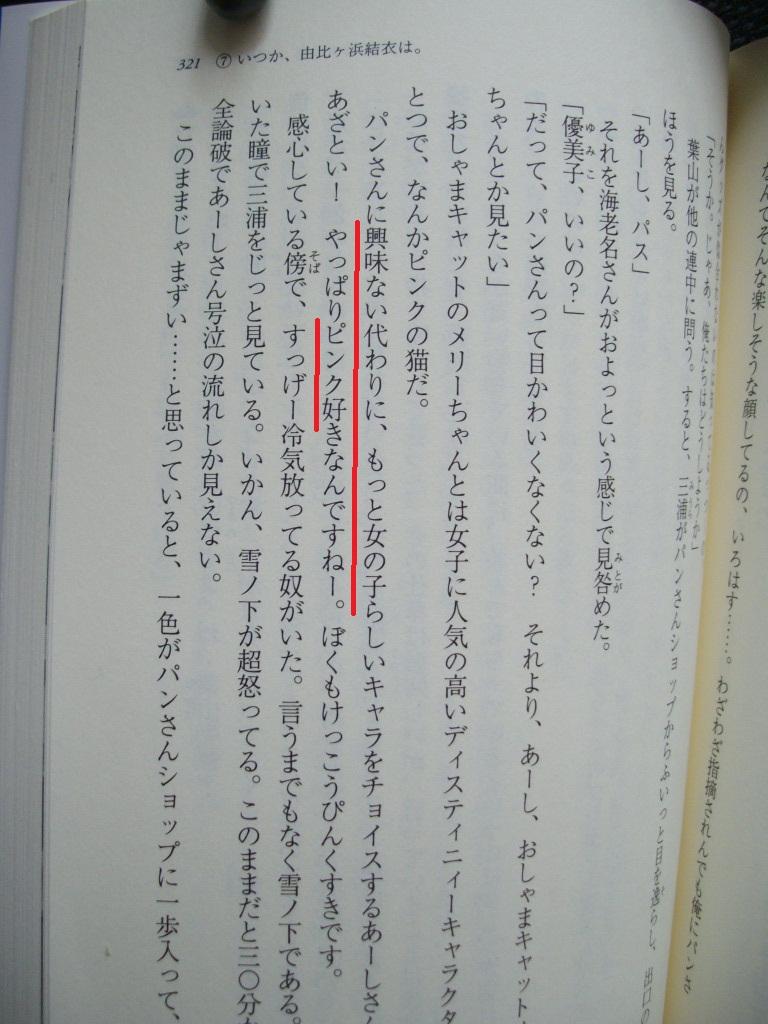 321　⑦いつか、由比ヶ浜結衣は。
なんでそんな楽しそうな顔してるの、いろはす……。わざわざ指摘されんでも俺にパンさ
「そうか。じゃあ、俺たちはどうしようか」
葉山が他の連中に問う。すると、三浦がパンさんショップからふいっと目を逸らし、出口の
ほうを見る。
「あーし、パス」
それを海老名さんがおよっという感じで見咎めた。
「優美子、いいの？」
「だって、パンさんって目かわいくなくない？　それより、あーし、おしゃまキャット
ちゃんとか見たい」
おしゃまキャットのメリーちゃんとは女子に人気の高いディスティニーキャラクタ
とつで、なんかピンクの猫だ。
パンさんに興味ない代わりに、もっと女の子らしいキャラをチョイスするあーしさん
あざとい！　やっぱりピンク好きなんですねー。ぼくもけっこうぴんくすきです。
感心している傍で、すっげー冷気放ってる奴がいた。言うまでもなく雪ノ下である。
いた瞳で三浦をじっと見ている。いかん、雪ノ下が超怒ってる。このままだと三〇分
全論破であーしさん号泣の流れしか見えない。
このままじゃまずい……と思っていると、一色がパンさんショップに一歩入って、